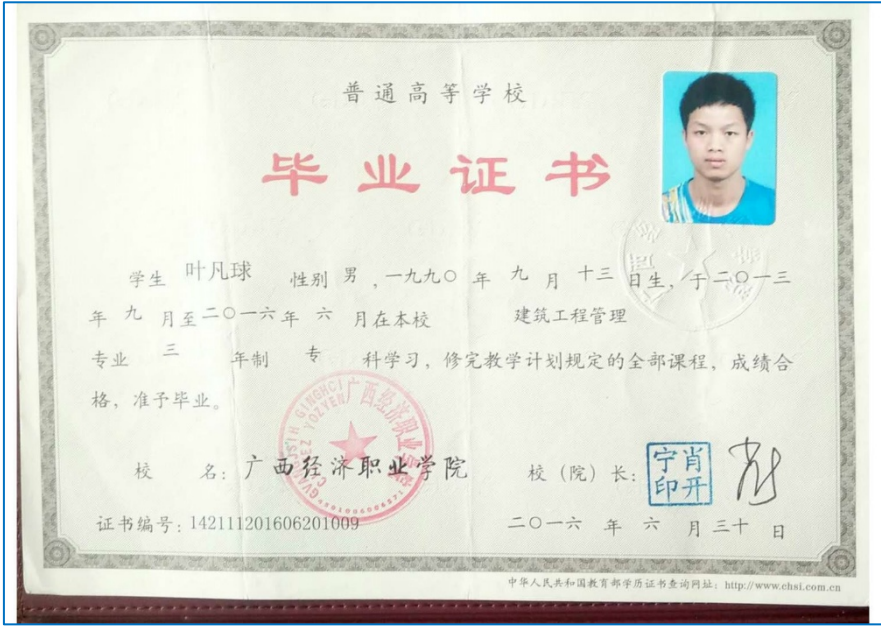 普通高等学校
毕业证书
学生 叶凡球 性别 男 ,一九九〇 年 九 月 十三 日生，于二〇一三
年 九 月至二〇一六年 六 月在本校 建筑工程管理
专业 三 年制 专 科学习，修完教学计划规定的全部课程，成绩合
格，准予毕业。
GVANGJSIH GINGHCI
CIZYEZ YOZYEN
广西经济职业学院
校 名：广西经济职业学院 校（院）长：
肖开
宁印
证书编号：142111201606201009 二〇一六 年 六 月 三十 日
中华人民共和国教育部学历证书查询网址：http://www.chsi.com.cn